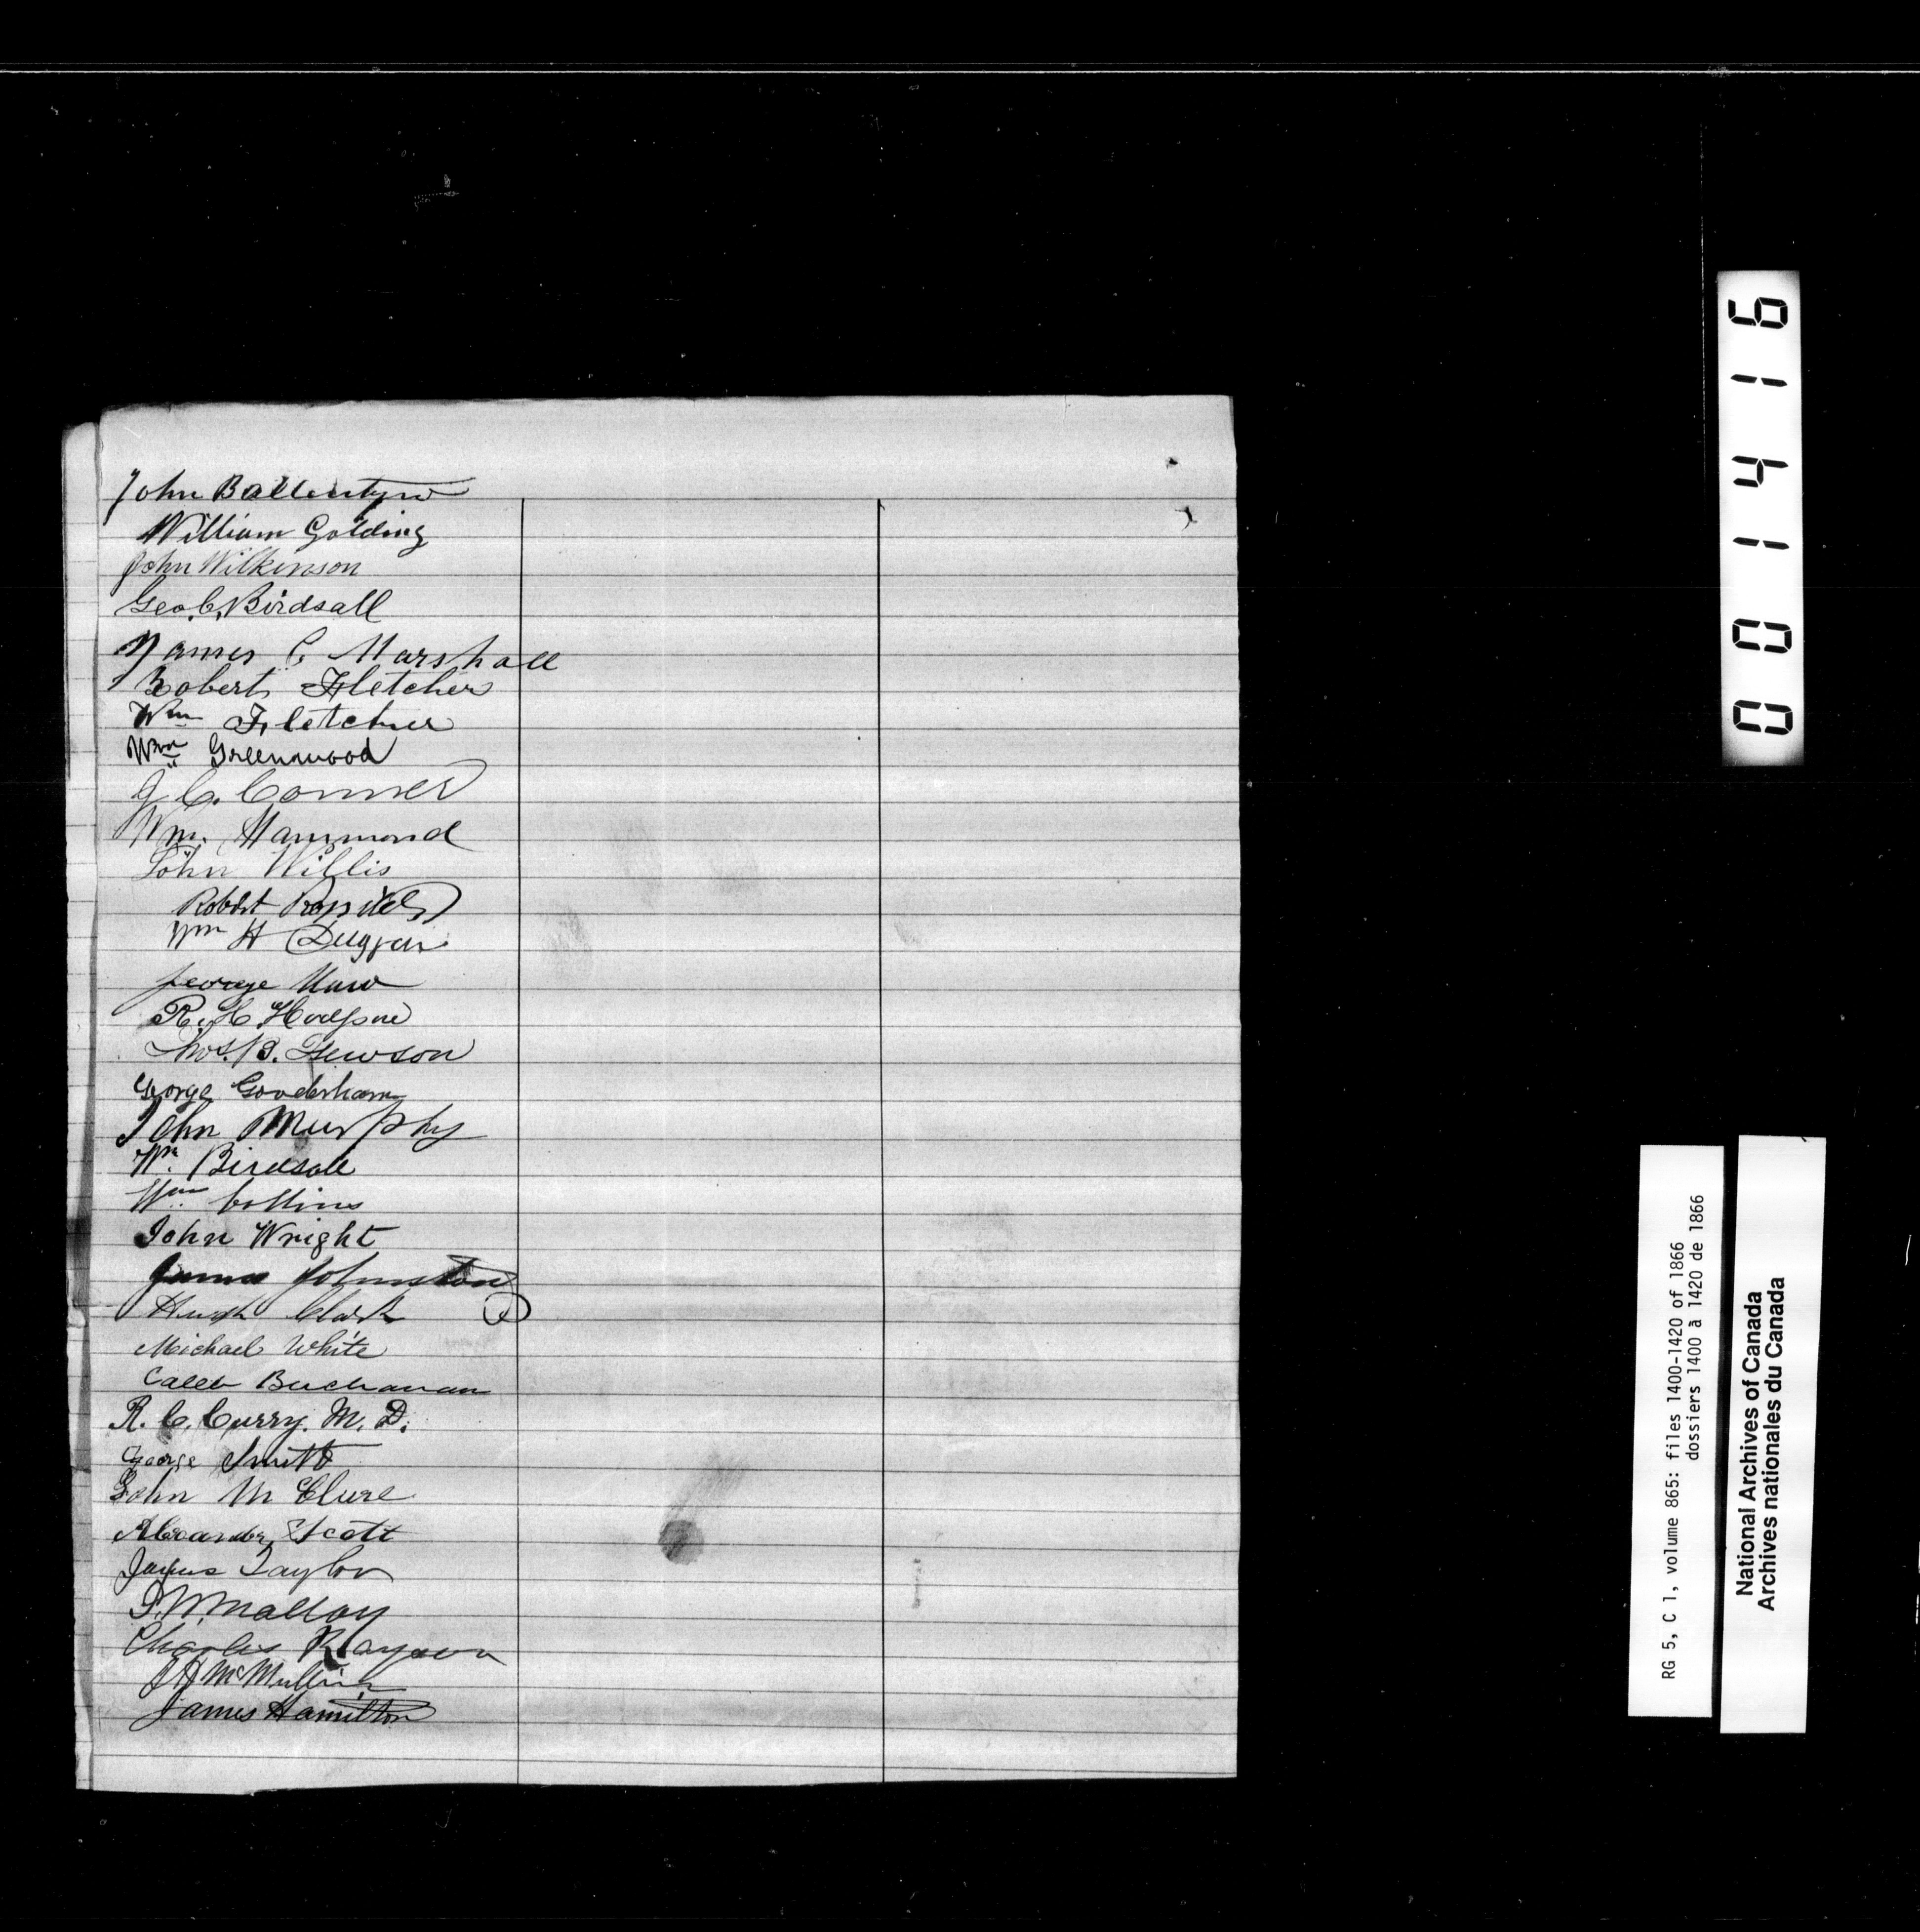 John Ballentyne
William Golding
John Wilkinson
Geo. C. Birdsall
James C Marshall
Robert Fletcher
Wm Fletcher
Wm Greenwood
J C. Conner
Wm. Hammond
John Willis
Robert
Wm H Duggan
George
R. H.
Thos. B. Hewson
George Gooderham
John Murphy
Wm. Birdsall
Wm. Collins
John Wright
James Johnston
Hugh Clark
Michael White
Caleb Buchanan
R. C. Curry. M. D.
George Smith
John McClure
Alexander Scott
James Taylor
Malloy
Charles
McMullin
James Hamilton
001416
RG 5, C 1, volume 865: files 1400-1420 of 1866
dossiers 1400 à 1420 de 1866
National Archives of Canada
Archives nationales du Canada